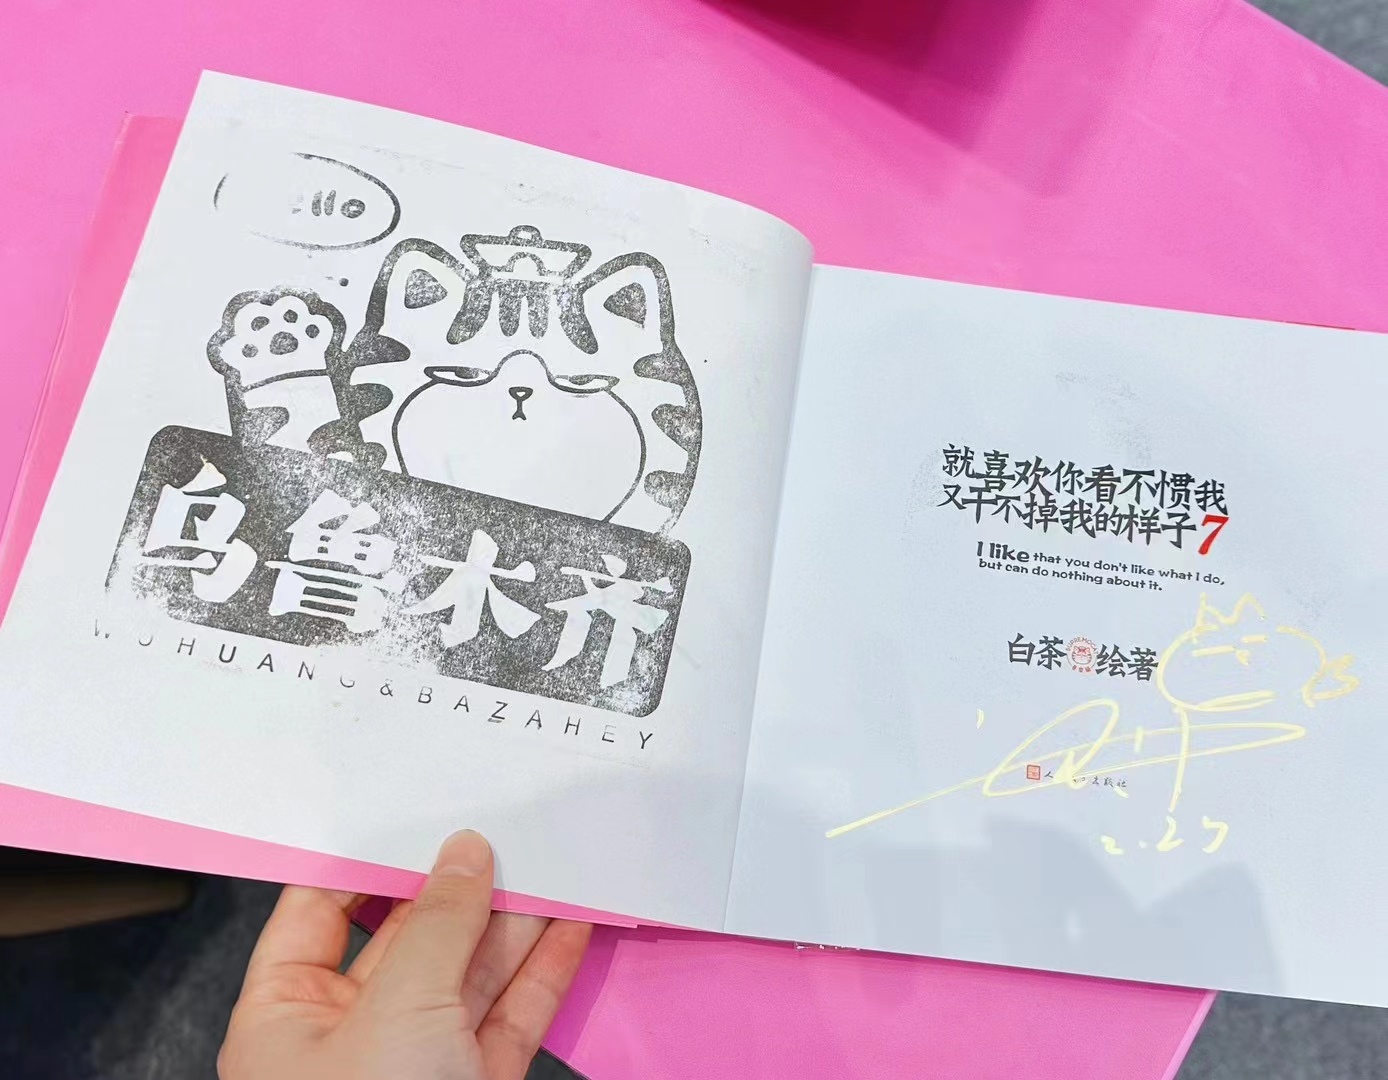 llo
乌鲁木齐
WUHUANG&BAZAHEY
就喜欢你看不惯我
又干不掉我的样子7
I like that you don't like what I do,
but can do nothing about it.
白茶 绘著
出版社
2.27